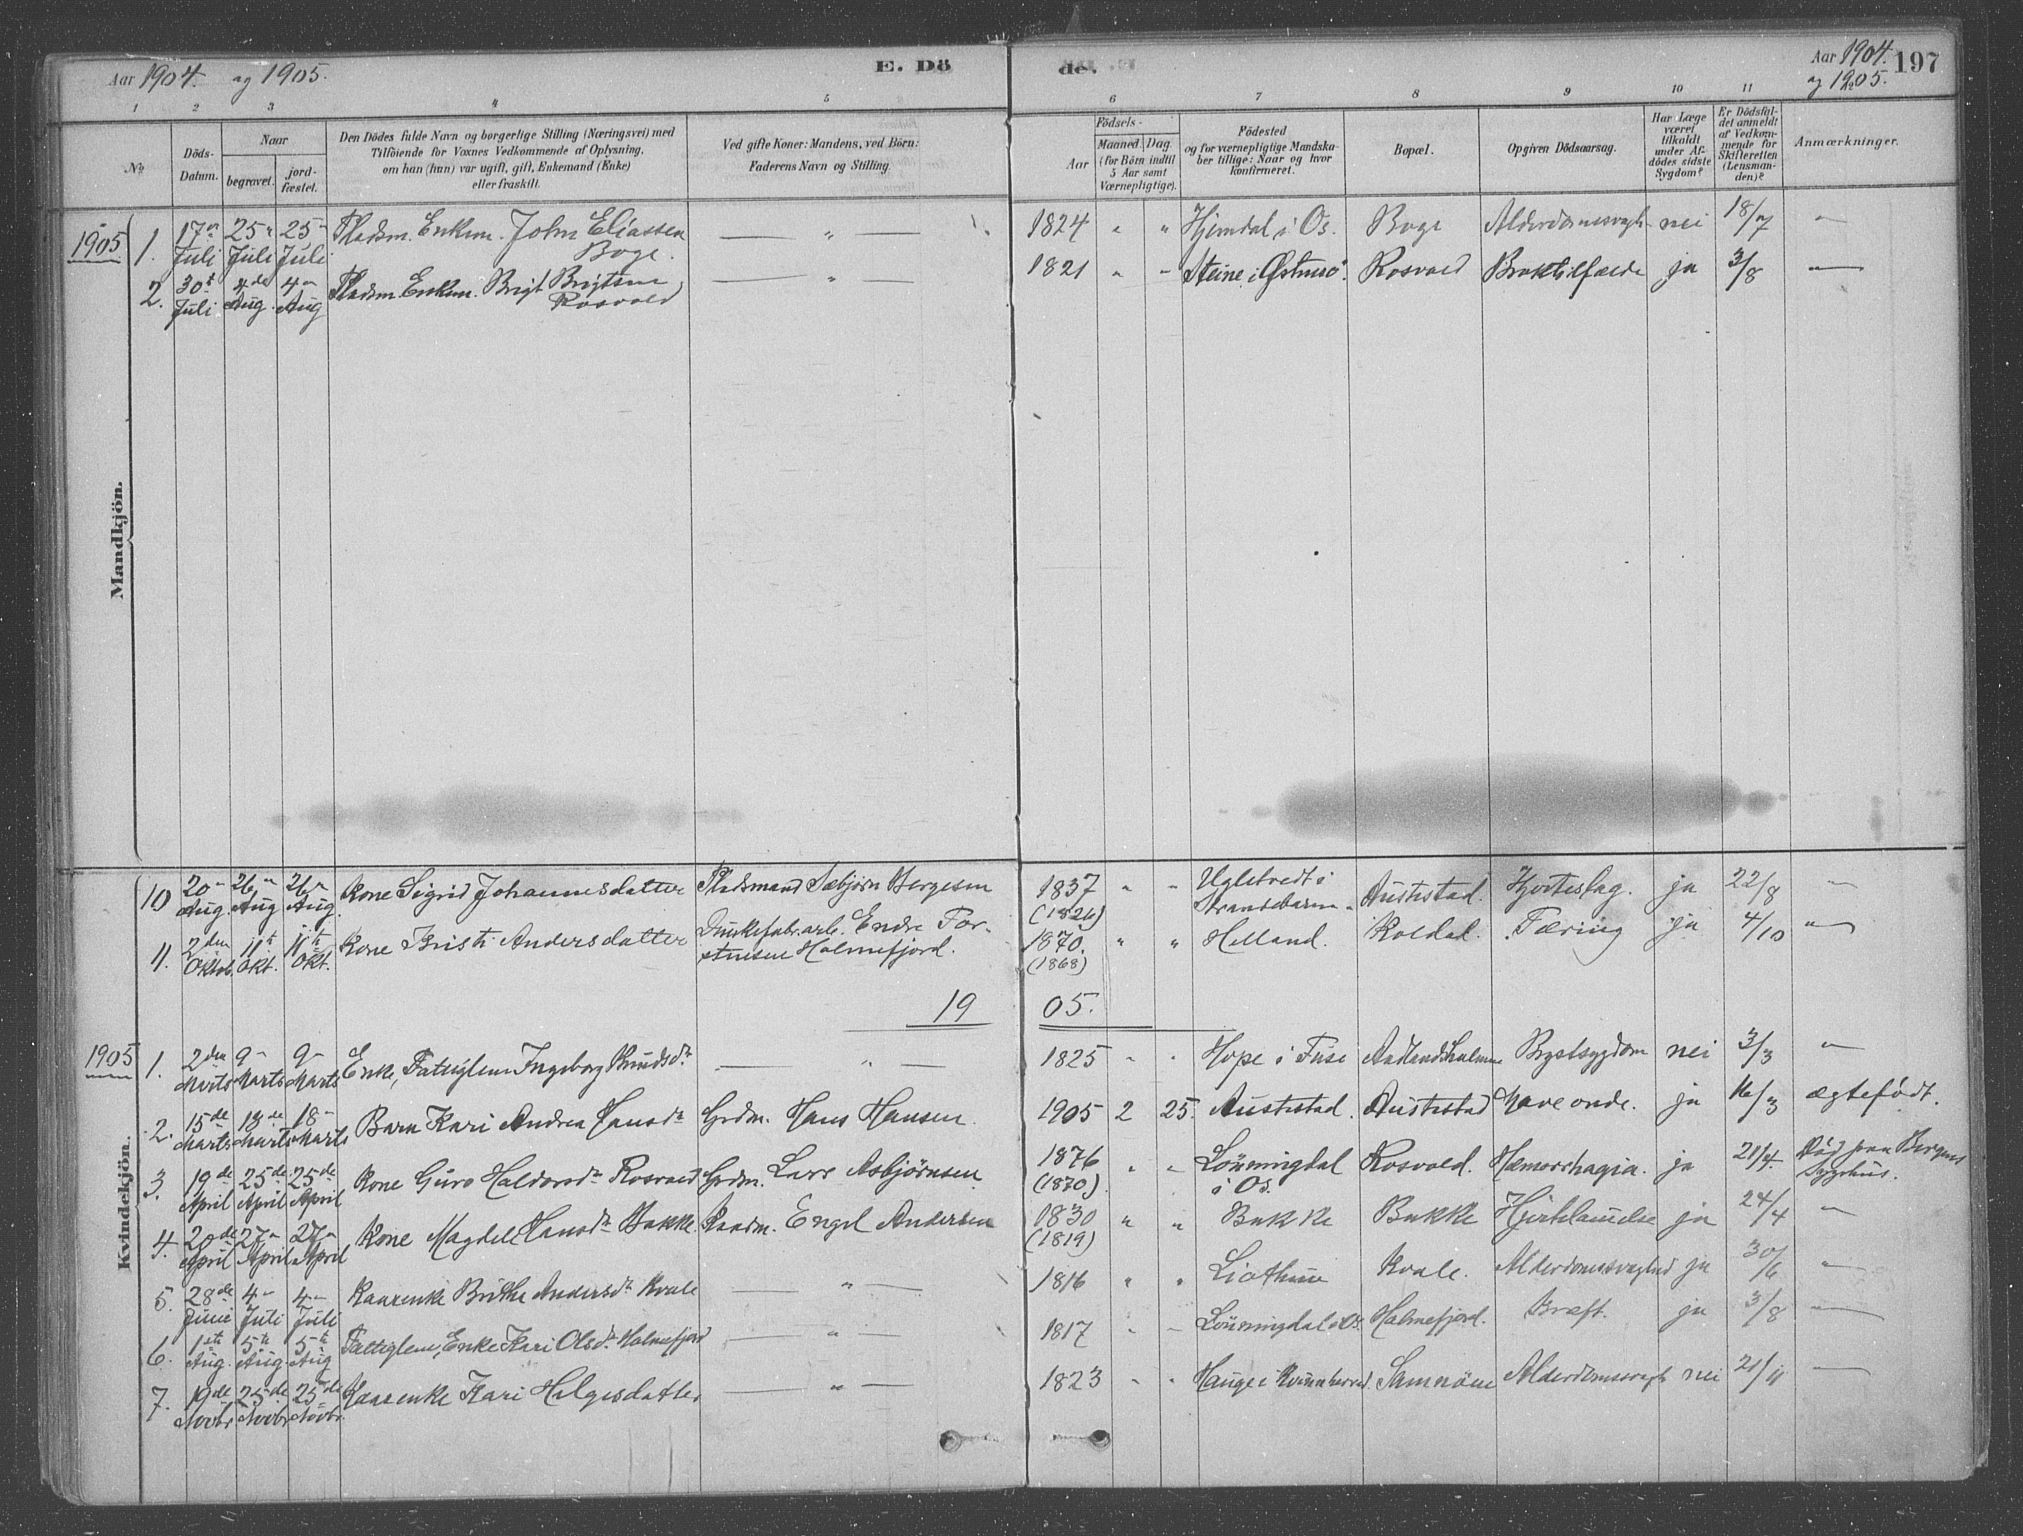 Aar 1904. og 1905.
E. Dö
de.
Aar 1904.
og 1905.
197
1 2 3 4 5 6 7 8 9 10 11 12
No.
Döds-
Datum.
Naar
begravet.
jord-
fæstet.
Den Dödes fulde Navn og borgerlige Stilling (Næringsvei) med
Tilföiende for Voxnes Vedkommende af Oplysning,
om han (hun) var ugift, gift, Enkemand (Enke)
eller fraskilt.
Ved gifte Koner: Mandens, ved Börn:
Faderens Navn og Stilling.
Födsels-
Aar
Maaned. Dag.
(for Börn indtil
5 Aar samt
Værnepligtige).
Födested
og for værnepligtige Mandska-
ber tillige: Naar og hvor
konfirmeret.
Bopæl.
Opgiven Dödsaarsag.
Har Læge
været
tilkaldt
under Af-
dödes sidste
Sygdom?
Er Dödsfal-
det anmeldt
af Vedkom-
mende for
Skifteretten
(Lensman-
den)?
Anmærkninger.
Mandkjön.
1905 1. 17de Juli 25 " Juli 25 " Juli Pladsm. Enkem. John Eliassen Boge. — " — 1824 " " Hjemdal i Os. Boge Alderdomssvagh. nei 18/7 "
2. 30t Juli 4de Aug. 4 " Aug Pladsm. Enkem. Brigt Brigtsen Rosvold — " — 1821 " " Steine i Østensö. Rosvold Braktilfælde ja 3/8 "
Kvindekjön.
10 20 " Aug 26 " Aug 26 " Aug. Kone Sigrid Johannesdatter Pladsmand Sæbjörn Bergesen 1837 (1826) " " Ugletvedt i Strandebarm Austestad. Hjerteslag. ja 22/8 "
11. 2den Oktob. 11t Okt. 11te Okt. Kone Kristi Andersdatter Dunkefabr.arb. Endre Tor-
stensen Holmefjord. 1870. (1868) " " Helland. Koldal. Tæring ja 4/10 "
19 05.
1905 1. 2den Marts 9 " Marts 9 " Marts Enke, Fattiglem Ingeborg Knudsdtr — " — 1825 " " Hope i Fuse Aadlandsholmen Brystsygdom nei 3/3 "
2. 15de Marts 18de Marts 18 " Marts Barn Kari Andrea Hansdtr Grdm. Hans Hansen. 1905 2 25. Austestad. Austestad Mave onde. ja 16/3 ægtefödt.
3. 19de April 25de April 25de April Kone Guro Haldorsdtr Rosvold Grdm. Lars Asbjörnsen 1876 (1870) " " Lönningdal i Os. Rosvold. Hæmorrhagia. ja 21/4. Död paa Bergens Sygehus.
4. 20de April 27 " April 27 " April Kone Magdeli Hansdtr Bakke Plaadm. Engel Andersen 1830 (1819) " " Bakke Bakke Hjertelamelse ja 24/4 "
5. 28de Juni 4 " Juli 4 " Juli Kaarenke Brithe Andersdtr Kvale — " — 1816 " " Liathun Kvale. Alderdomssvaghed ja 30/6 "
6. 1ste Aug. 5te Aug. 5te Aug Fattiglem, Enke Kari Olsdtr Holmefjord — " — 1817 " " Lönningdal i Os Holmefjord. Kræft. ja 3/8 "
7. 19de Novbr 25de Novbr 25de Novbr. Kaarenke Kari Helgesdatter — " — 1823 " " Hauge i Kvinnherred Samnöen Alderdomssvagh nei 21/11 "